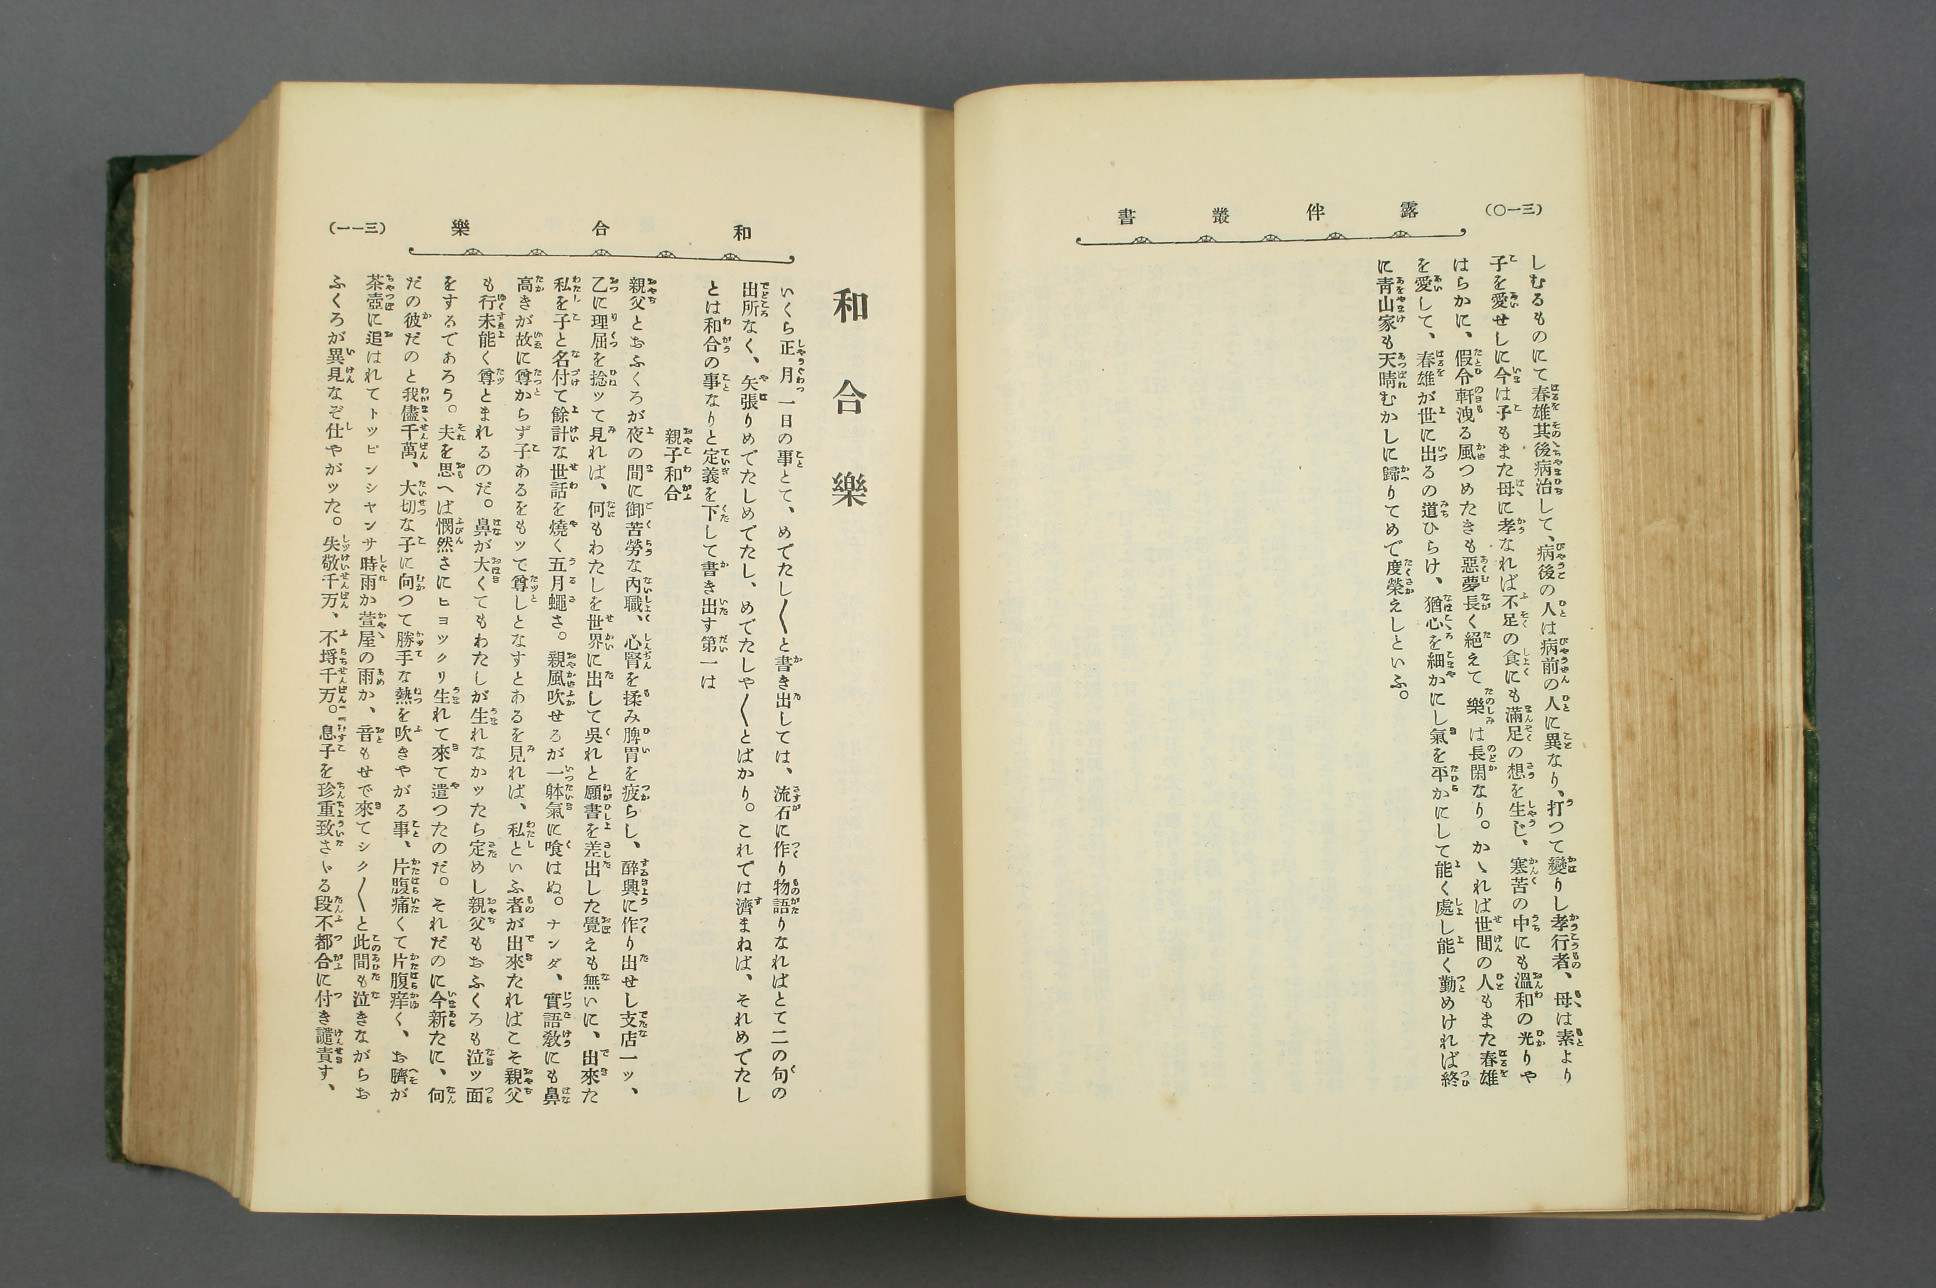 (三一〇)
露伴叢書
しむるものにて春雄其後病治して、病後の人は病前の人に異なり、打つて變りし孝行者、母は素より
子を愛せしに今は子もまた母に孝なれば不足の食にも滿足の想を生じ、寒苦の中にも溫和の光りや
はらかに、假令軒洩る風つめたきも惡夢長く絕えて樂は長閑なり。かゝれば世間の人もまた春雄
を愛して、春雄が世に出るの道ひらけ、猶心を細かにし氣を平かにして能く處し能く勤めければ終
に靑山家も天晴むかしに歸りてめで度榮えしといふ。
和合樂
(三一一)
和合樂
いくら正月一日の事とて、めでたし〱と書き出しては、流石に作り物語りなればとて二の句の
出所なく、矢張りめでたしめでたし、めでたしや〱とばかり。これでは濟まねば、それめでたし
とは和合の事なりと定義を下して書き出す第一は
親子和合
親父とおふくろが夜の間に御苦勞な內職、心腎を揉み脾胃を疲らし、醉興に作り出せし支店一ッ、
乙に理屈を捻ッて見れば、何もわたしを世界に出して吳れと願書を差出した覺えも無いに、出來た
私を子と名付て餘計な世話を燒く五月蠅さ。親風吹せるが一躰氣に喰はぬ。ナンダ、實語敎にも鼻
高きが故に尊からず子あるをもッて尊しとなすとあるを見れば、私といふ者が出來たればこそ親父
も行末能く尊とまれるのだ。鼻が大くてもわたしが生れなかッたら定めし親父もおふくろも泣ッ面
をするであろう。夫を思へば憫然さにヒョックリ生れて來て遣つたのだ。それだのに今新たに、何
だの彼だのと我儘千萬、大切な子に向つて勝手な熱を吹きやがる事、片腹痛くて片腹痒く、お臍が
茶壺に追はれてトッピンシャンサ時雨か萱屋の雨か、音もせで來てシク〱と此間も泣きながらお
ふくろが異見なぞ仕やがッた。失敬千万、不埒千万。息子を珍重致さゝる段不都合に付き譴責す、